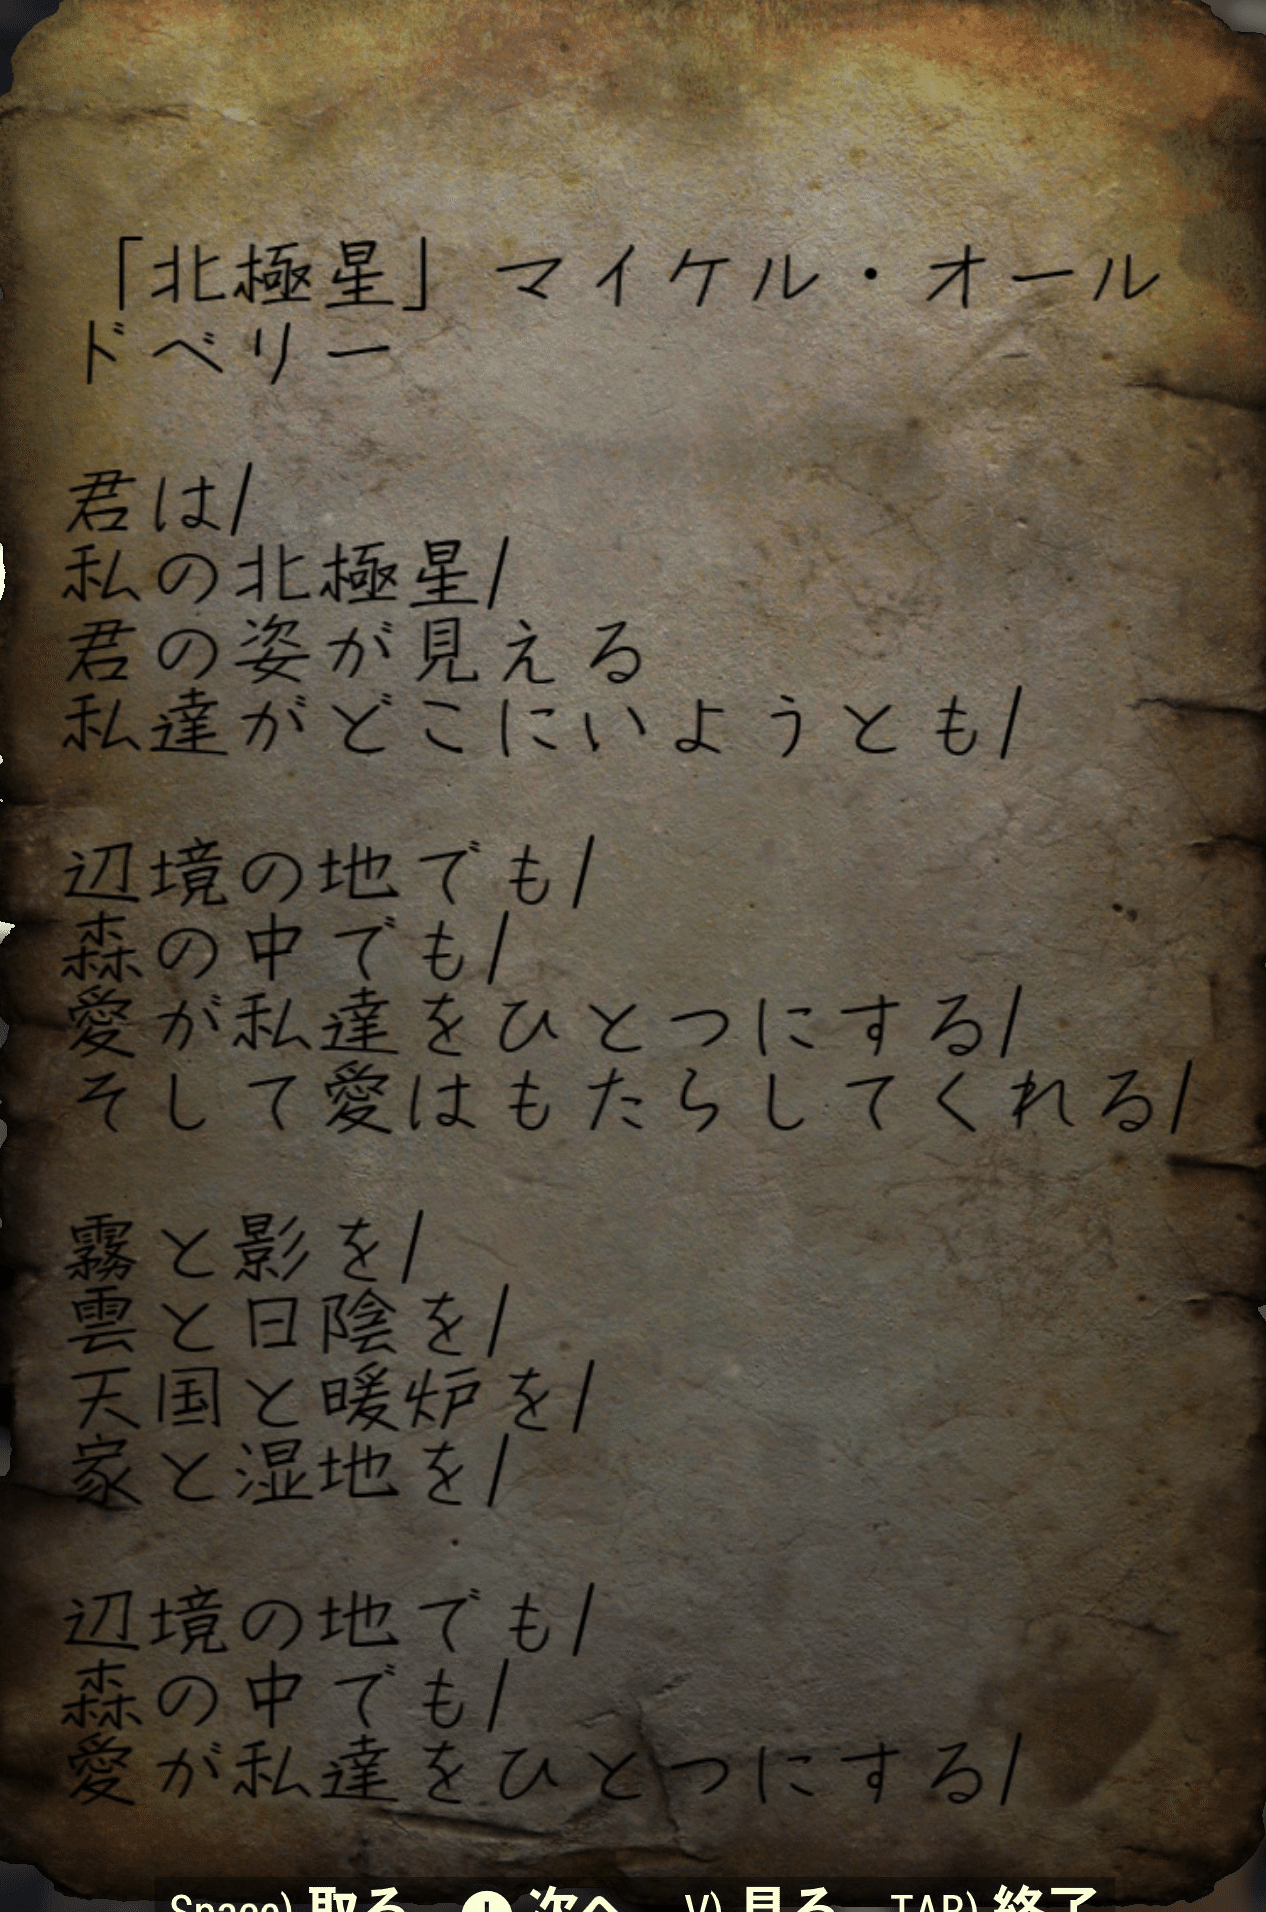 「北極星」 マイケル・オール
ドベリー
君は/
私の北極星/
君の姿が見える
私達がどこにいようとも/
辺境の地でも/
森の中でも/
愛が私達をひとつにする/
そして愛はもたらしてくれる/
霧と影を/
雲と日陰を/
天国と暖炉を/
家と湿地を/
辺境の地でも/
森の中でも/
愛が私達をひとつにする/
Space) 取る 次へ V) 見る TAB) 終了